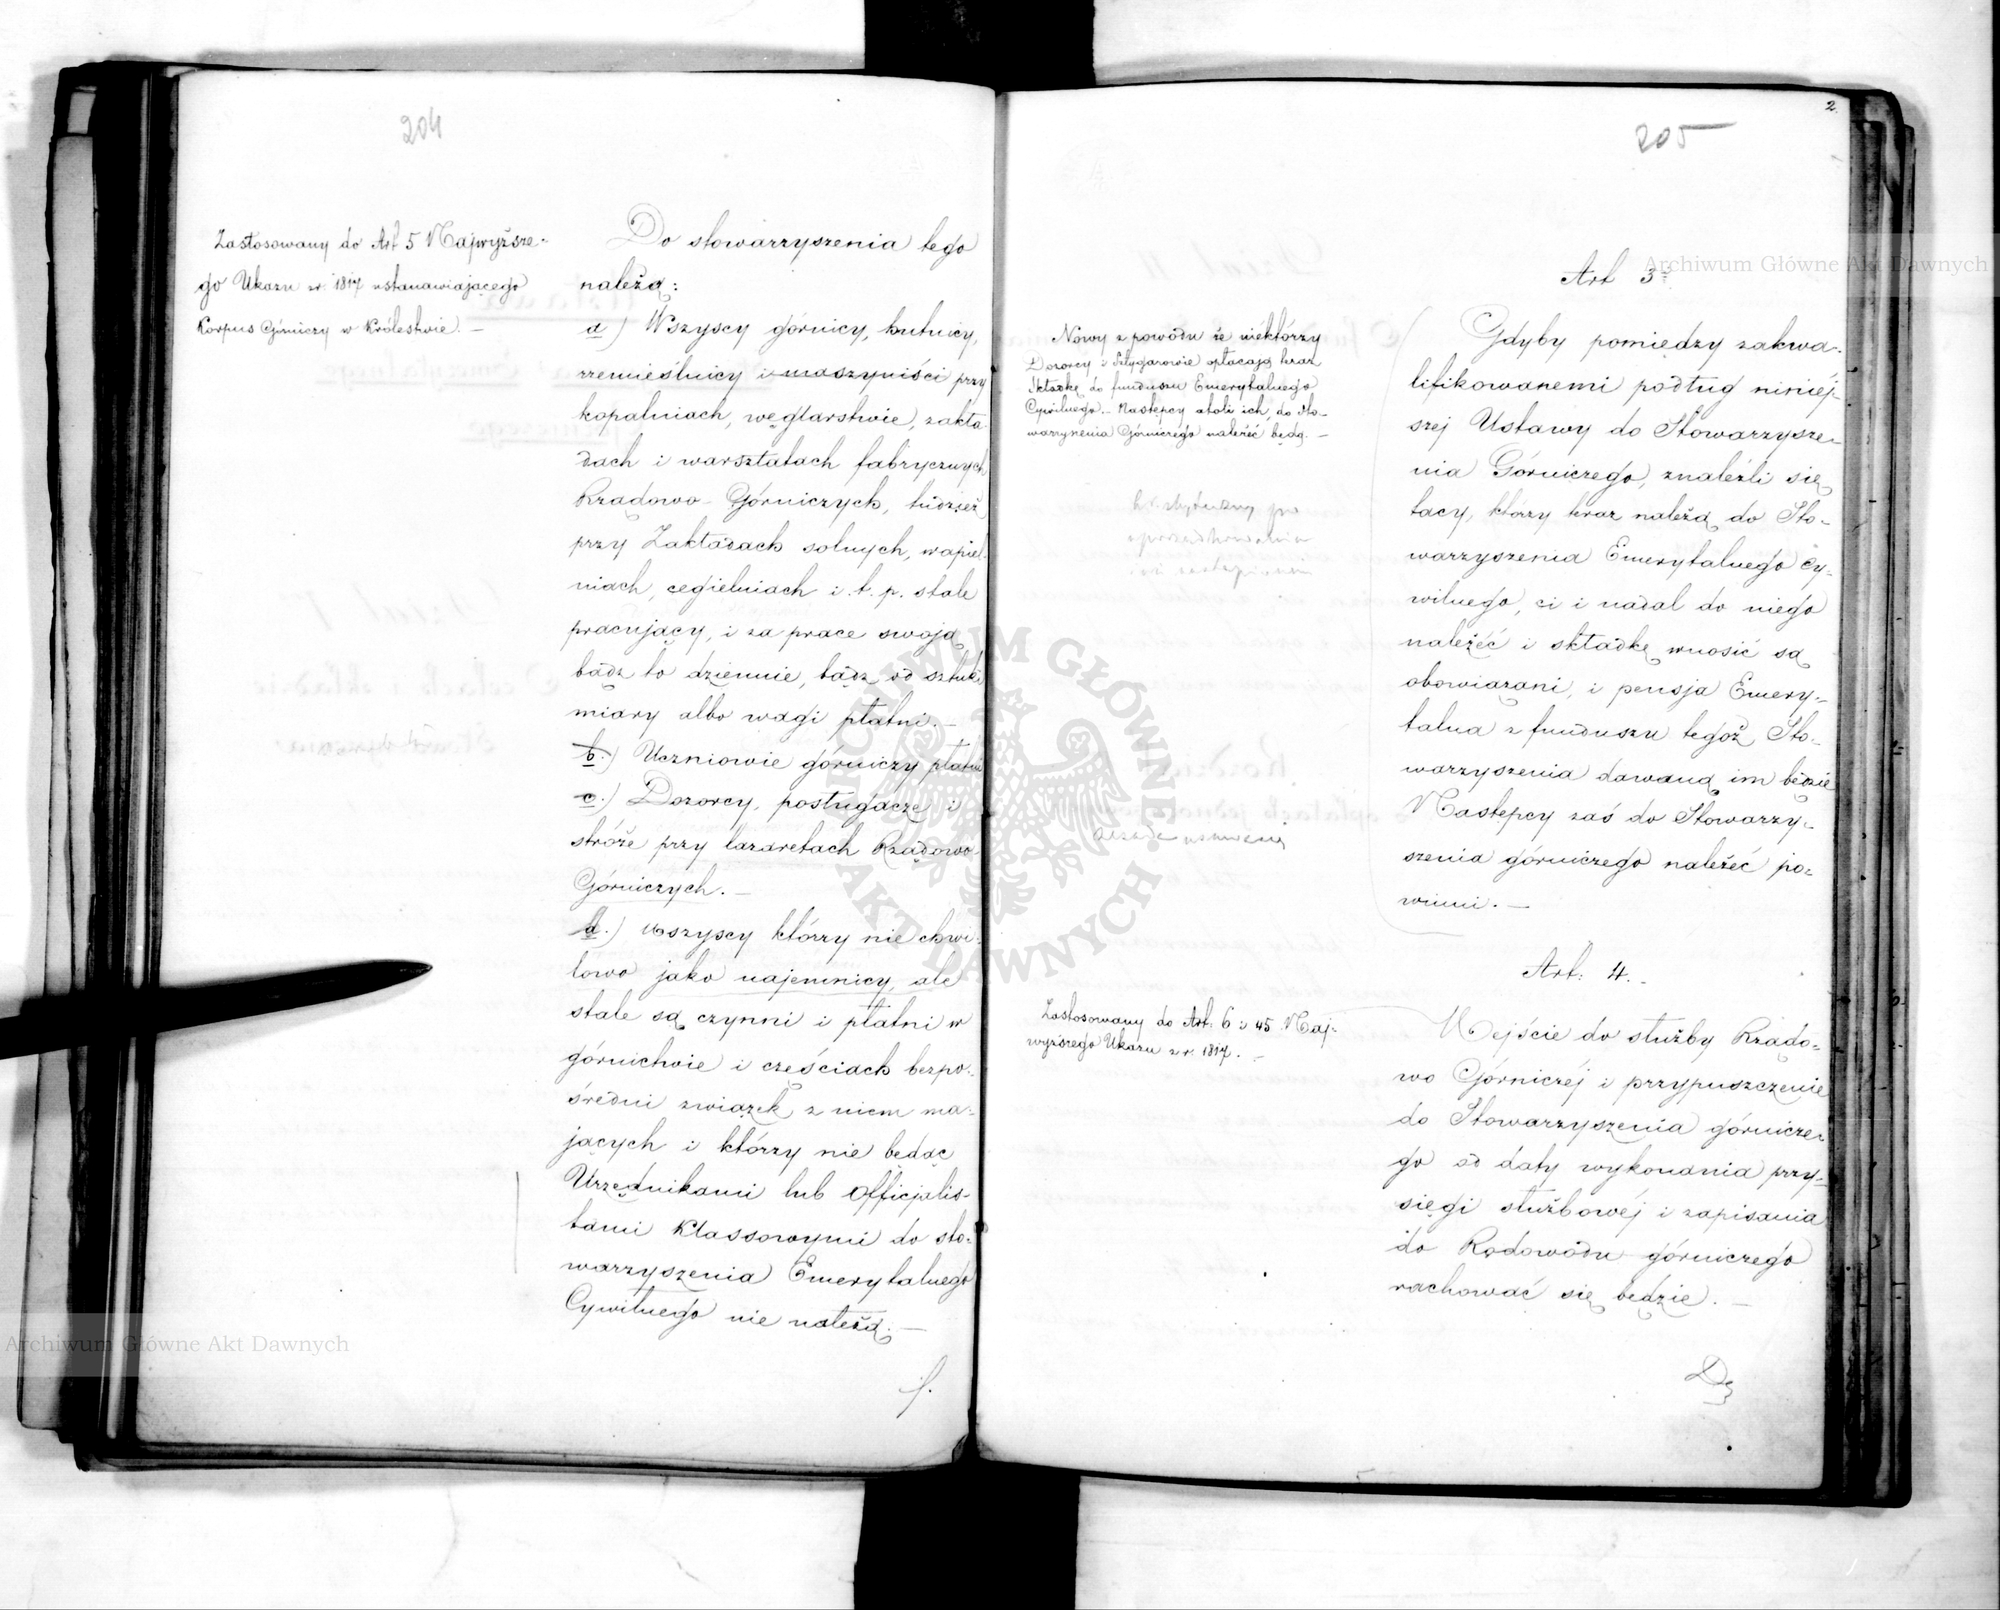 204
Zastosowany do Art 5 Najwyższe-
go Ukazu z r. 1817 ustanawiającego
Korpus Górniczy w Królestwie. —
Do stowarzyszenia tego
należą:
a) Wszyscy górnicy, hutnicy,
rzemieślnicy i maszyniści przy
kopalniach, węglarstwie, zakła-
dach i warsztatach fabrycznych
Rządowo-Górniczych, tudzież
przy Zakładach solnych, wapiel-
niach, cegielniach i t. p. stale
pracujący, i za prace swoją
bądz to dziennie, bądz od sztuki
miary albo wagi płatni. —
b.) Uczniowie górniczy płatni
c.) Dozorcy, posługacze i
stróże przy lazaretach Rządowo-
Górniczych. —
d.) wszyscy którzy nie chwi-
lowo jako najemnicy, ale
stale są czynni i płatni w
górnictwie i cześciach bezpo-
średni związek z niem ma-
jących i którzy nie będąc
Urzędnikami lub Officjalis-
tami Klassowymi do sto-
warzyszenia Emerytalnego
Cywilnego nie należą. —
2.
205
Art 3
Nowy z powodu że niektórzy
Dozorcy i Sztygarowie opłacają teraz
Składkę do funduszu Emerytalnego
Cywilnego. Następcy atoli ich, do Sto-
warzyszenia Górniczego należeć będą. —
Gdyby pomiędzy zakwa-
lifikowanemi podług niniej-
szej Ustawy do Stowarzysze-
nia Górniczego, znaleźli się
tacy, którzy teraz należą do Sto-
warzyszenia Emerytalnego Cy-
wilnego, ci i nadal do niego
należéć i składkę wnosić są
obowiązani, i pensja Emery-
talna z funduszu tegoż Sto-
warzyszenia dawaną im będzie
Następcy zaś do Stowarzy-
szenia górniczego należeć po-
winni. —
Art: 4.
Zastosowany do Art: 6 i 45 Naj-
wyższego Ukazu z r. 1817. —
Wejście do służby Rządo-
wo Górniczéj i przypuszczenie
do Stowarzyszenia górnicze-
go od daty wykonania przy-
sięgi służbowéj i zapisania
do Rodowodu górniczego
rachować się będzie. —
Archiwum Główne Akt Dawnych
ARCHIWUM GŁÓWNE AKT DAWNYCH
Archiwum Główne Akt Dawnych